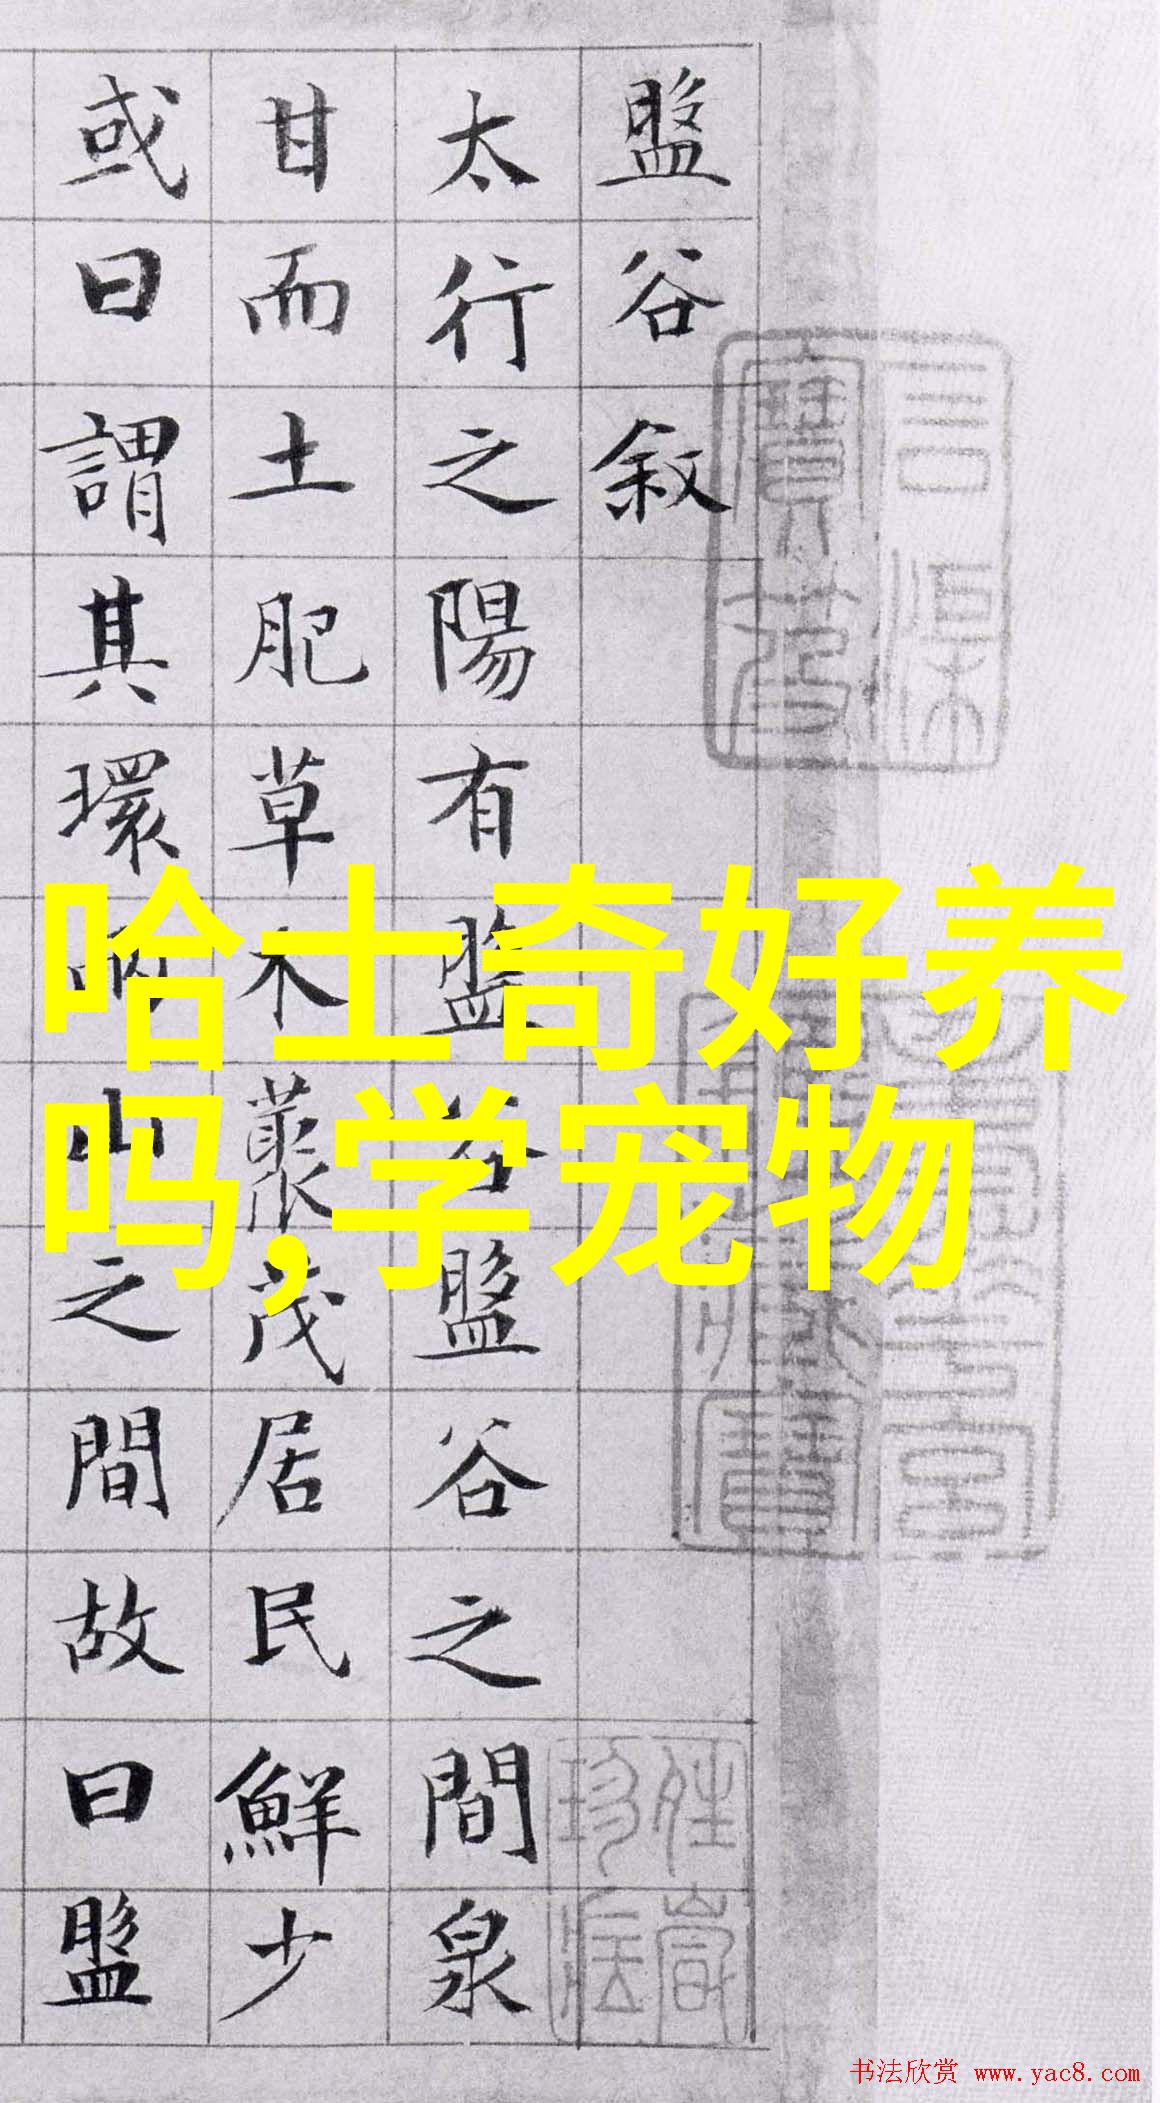 盤谷敘
太行之陽有盤谷盤谷之間泉
甘而土肥草木藂茂居民鮮少
或曰謂其環兩山之間故曰盤
哈士奇好养
吗,学宠物
书法欣赏 www.yac8.com